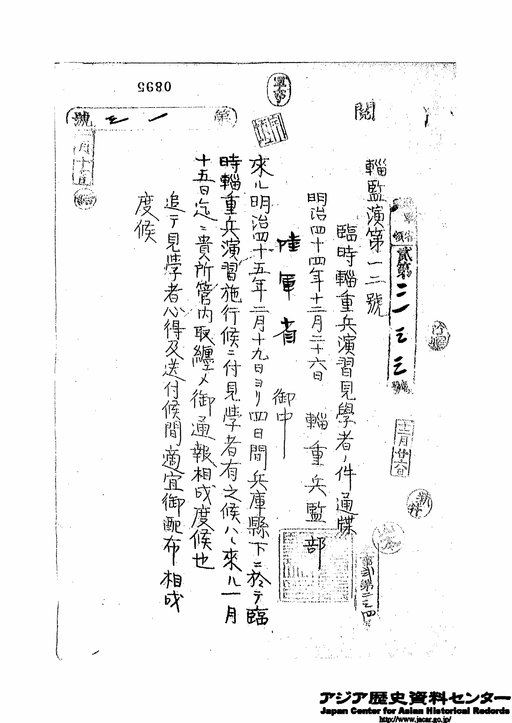 0895
閲
第一二號
輜監演第一二號
臨時輜重兵演習見學者ノ件通牒
明治四十四年十二月二十六日 輜重兵監部
陸軍省 御中
來ル明治四十五年二月十九日ヨリ四日間兵庫縣下ニ於テ臨
時輜重兵演習施行候ニ付見學者有之候ハヽ來ル一月
十五日迄ニ貴所管内取纏メ御通報相成度候也
追テ見學者心得及送付候間適宜御配布相成
度候
十二月廿六日
アジア歴史資料センター
Japan Center for Asian Historical Records
http://www.jacar.go.jp/